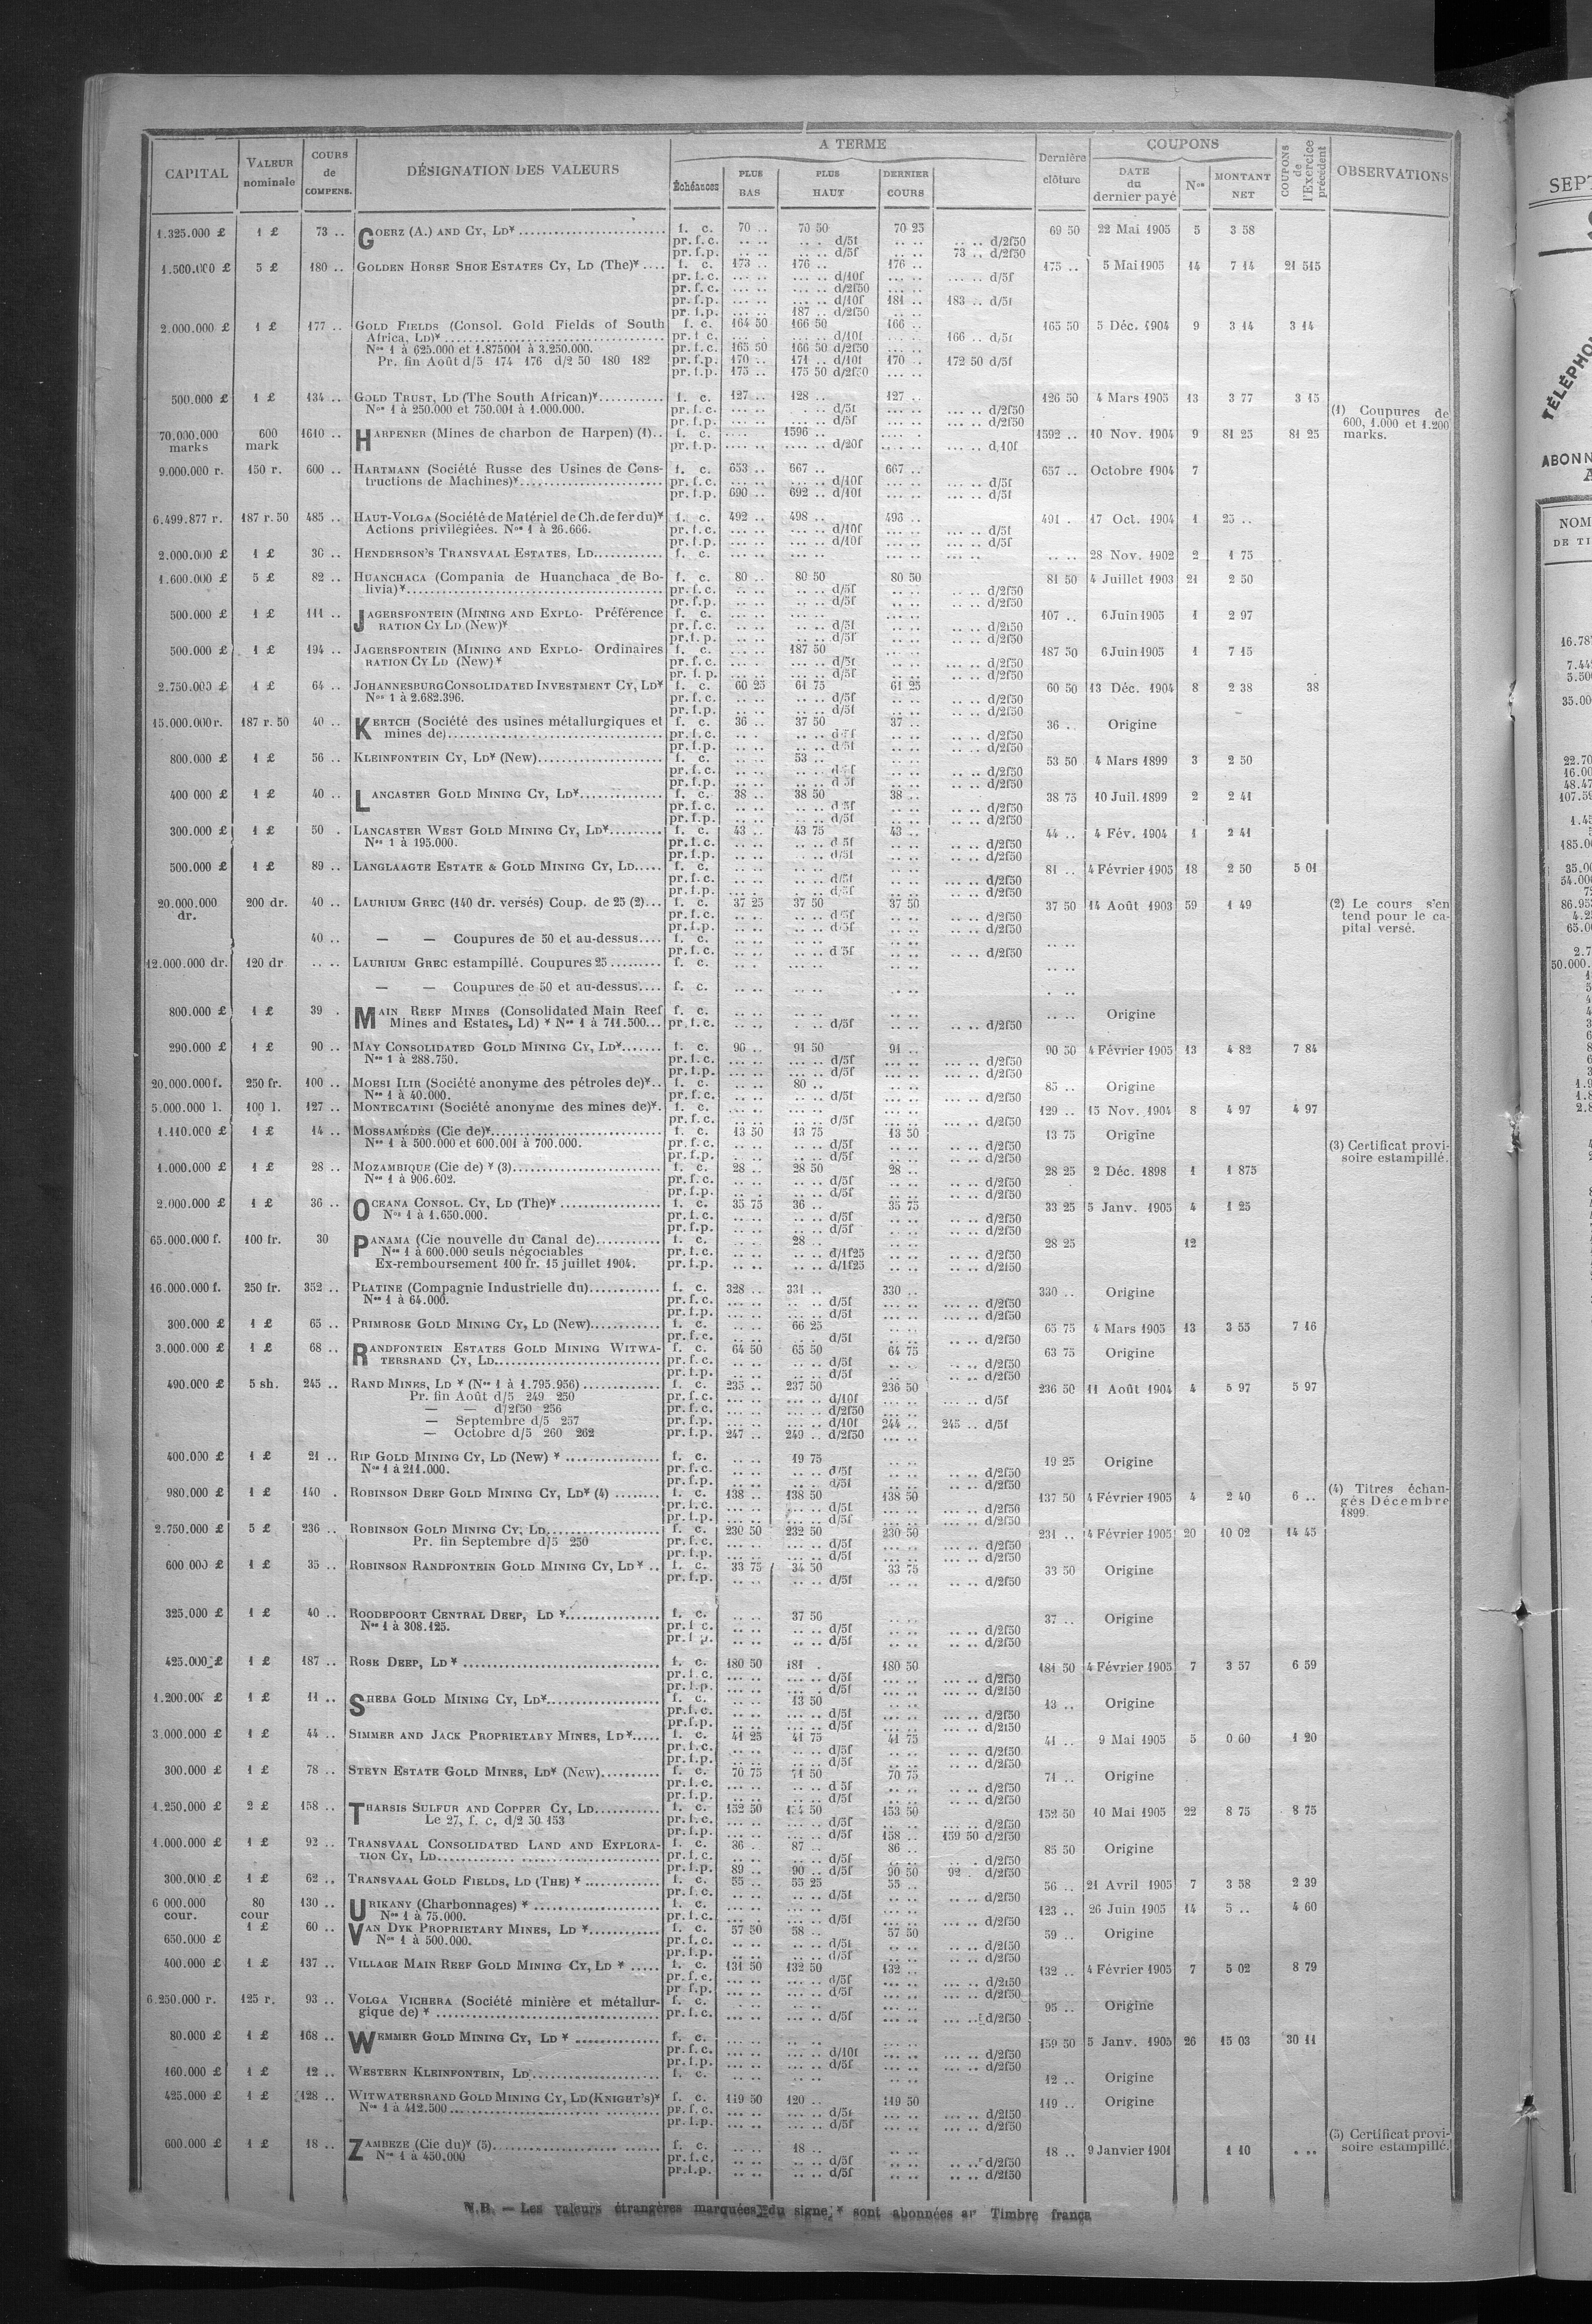 CAPITAL | VALEUR nominale | COURS de COMPENS. | DÉSIGNATION DES VALEURS | A TERME | Dernière clôture | COUPONS | COUPONS de l'Exercice précédent | OBSERVATIONS
Échéances | PLUS BAS | PLUS HAUT | DERNIER COURS | DATE du dernier payé | Nos | MONTANT NET
1.325.000 £ | 1 £ | 73 .. | GOERZ (A.) AND CY, LD* | f. c. | 70 .. | 70 50 | 70 25 | 69 50 | 22 Mai 1905 | 5 | 3 58
pr. f. c. | .. .. | .. . d/5f | .. .. | .. .. d/2f50
pr. f. p. | .. .. | .. .. d/5f | .. .. | 73 .. d/2f50
1.500.000 £ | 5 £ | 180 .. | GOLDEN HORSE SHOE ESTATES CY, LD (The)* | f. c. | 173 .. | 176 .. | 176 .. | 175 .. | 5 Mai 1905 | 14 | 7 14 | 21 515
pr. f. c. | ... .. | ... .. d/10f | ... .. | ... .. d/5f
pr. f. c. | ... .. | ... .. d/2f50 | ... ..
pr. f. p. | ... .. | ... .. d/10f | 181 .. | 183 .. d/5f
pr. f. p. | ... .. | 187 .. d/2f50 | .. ..
2.000.000 £ | 1 £ | 177 .. | GOLD FIELDS (Consol. Gold Fields of South | f. c. | 164 50 | 166 50 | 166 .. | 165 50 | 5 Déc. 1904 | 9 | 3 14 | 3 14
Africa, LD)* | pr. f. c. | ... .. | ... .. d/10f | ... .. | 166 .. d/5f
Nos 1 à 625.000 et 1.875001 à 3.250.000. | pr. f. c. | 165 50 | 166 50 d/2f50 | ... ..
Pr. fin Août d/5 174 176 d/2 50 180 182 | pr. f. p. | 170 .. | 171 .. d/10f | 170 .. | 172 50 d/5f
pr. f. p. | 175 .. | 175 50 d/2f50 | ... ..
500.000 £ | 1 £ | 134 .. | GOLD TRUST, LD (The South African)* | f. c. | 127 .. | 128 .. | 127 .. | 126 50 | 4 Mars 1905 | 13 | 3 77 | 3 15
Nos 1 à 250.000 et 750.001 à 1.000.000. | pr. f. c. | ... .. | . .. d/5f | ... .. | ... .. d/2f50 | (1) Coupures de
pr. f. p. | ... .. | ... .. d/5f | ... .. | ... .. d/2f50 | 600, 1.000 et 1.200
70.000.000 marks | 600 mark | 1610 .. | HARPENER (Mines de charbon de Harpen) (1) | f. c. | .... | 1596 .. | .... | 1592 .. | 10 Nov. 1904 | 9 | 81 25 | 81 25 | marks.
pr. f. p. | ... .. | ... .. d/20f | ... .. | ... .. d/10f
9.000.000 r. | 150 r. | 600 .. | HARTMANN (Société Russe des Usines de Cons- | f. c. | 653 .. | 667 .. | 667 .. | 657 .. | Octobre 1904 | 7
tructions de Machines)* | pr. f. c. | ... .. | ... .. d/10f | ... .. | ... .. d/5f
pr. f. p. | 690 .. | 692 .. d/10f | ... .. | ... .. d/5f
6.499.877 r. | 187 r. 50 | 485 .. | HAUT-VOLGA (Société de Matériel de Ch. de fer du)* | f. c. | 492 .. | 498 .. | 493 .. | 491 . | 17 Oct. 1904 | 1 | 25 ..
Actions privilégiées. Nos 1 à 26.666. | pr. f. c. | ... .. | ... .. d/10f | ... .. | ... .. d/5f
pr. f. p. | ... .. | ... .. d/10f | ... .. | ... .. d/5f
2.000.000 £ | 1 £ | 36 .. | HENDERSON'S TRANSVAAL ESTATES, LD | f. c. | ... .. | ... .. | ... .. | .. .. | 28 Nov. 1902 | 2 | 1 75
1.600.000 £ | 5 £ | 82 .. | HUANCHACA (Compania de Huanchaca de Bo- | f. c. | 80 .. | 80 50 | 80 50 | 81 50 | 4 Juillet 1903 | 21 | 2 50
livia)* | pr. f. c. | .. .. | .. .. d/5f | .. .. | .. .. d/2f50
pr. f. p. | .. .. | .. .. d/5f | .. .. | .. .. d/2f50
500.000 £ | 1 £ | 111 .. | JAGERSFONTEIN (MINING AND EXPLO- Préférence | f. c. | ... .. | ... .. | .. .. | 107 .. | 6 Juin 1905 | 1 | 2 97
RATION CY LD (New)* | pr. f. c. | .. .. | .. .. d/5f | .. .. | ... .. d/2f50
pr. f. p. | .. .. | .. .. d/5f | .. .. | ... .. d/2f50
500.000 £ | 1 £ | 194 .. | JAGERSFONTEIN (MINING AND EXPLO- Ordinaires | f. c. | ... .. | 187 50 | .. .. | 187 50 | 6 Juin 1905 | 1 | 7 15
RATION CY LD (New)* | pr. f. c. | ... . | ... .. d/5f | .. .. | ... .. d/2f50
pr. f. p. | .. .. | ... .. d/5f | .. .. | ... .. d/2f50
2.750.000 £ | 1 £ | 64 .. | JOHANNESBURG CONSOLIDATED INVESTMENT CY, LD* | f. c. | 60 25 | 61 75 | 61 25 | 60 50 | 13 Déc. 1904 | 8 | 2 38 | 38
Nos 1 à 2.682.396. | pr. f. c. | .. .. | .. .. d/5f | .. .. | .. .. d/2f50
pr. f. p. | .. .. | .. .. d/5f | .. .. | .. .. d/2f50
15.000.000 r. | 187 r. 50 | 40 .. | KERTCH (Société des usines métallurgiques et | f. c. | 36 .. | 37 50 | 37 .. | 36 .. | Origine
mines de) | pr. f. c. | .. . | .. .. d/5f | .. .. | .. .. d/2f50
pr. f. p. | .. .. | .. .. d/5f | .. .. | .. .. d/2f50
800.000 £ | 1 £ | 56 .. | KLEINFONTEIN CY, LD* (New) | f. c. | .. .. | 53 .. | .. .. | 53 50 | 4 Mars 1899 | 3 | 2 50
pr. f. c. | .. .. | .. .. d/5f | .. .. | .. .. d/2f50
pr. f. p. | .. .. | .. .. d/5f | .. .. | .. .. d/2f50
400 000 £ | 1 £ | 40 .. | LANCASTER GOLD MINING CY, LD* | f. c. | 38 .. | 38 50 | 38 .. | 38 75 | 10 Juil. 1899 | 2 | 2 41
pr. f. c. | .. .. | .. .. d/5f | .. .. | .. .. d/2f50
pr. f. p. | .. .. | .. .. d/5f | .. .. | .. .. d/2f50
300.000 £ | 1 £ | 50 . | LANCASTER WEST GOLD MINING CY, LD* | f. c. | 43 .. | 43 75 | 43 .. | 44 .. | 4 Fév. 1904 | 1 | 2 41
Nos 1 à 195.000. | pr. f. c. | .. .. | .. .. d/5f | .. .. | .. .. d/2f50
pr. f. p. | .. .. | .. .. d/5f | .. .. | .. .. d/2f50
500.000 £ | 1 £ | 89 .. | LANGLAAGTE ESTATE & GOLD MINING CY, LD | f. c. | .. .. | .. .. | .. .. | 81 .. | 4 Février 1905 | 18 | 2 50 | 5 01
pr. f. c. | .. .. | .. .. d/5f | .. .. | ... .. d/2f50
pr. f. p. | .. .. | .. .. d/5f | .. .. | ... .. d/2f50
20.000.000 dr. | 200 dr. | 40 .. | LAURIUM GREC (140 dr. versés) Coup. de 25 (2) | f. c. | 37 25 | 37 50 | 37 50 | 37 50 | 14 Août 1903 | 59 | 1 49 | (2) Le cours s'en
pr. f. c. | .. .. | .. .. d/5f | .. .. | .. .. d/2f50 | tend pour le ca-
pr. f. p. | .. .. | .. .. d/5f | .. .. | .. .. d/2f50 | pital versé.
40 .. | — — Coupures de 50 et au-dessus | f. c. | .. .. | .. .. | .. .. | .. ..
pr. f. c. | .. .. | .. .. d/5f | .. .. | .. .. d/2f50
12.000.000 dr. | 120 dr | .. .. | LAURIUM GREC estampillé. Coupures 25 | f. c. | .. . | ... .. | .. .. | .. ..
— — Coupures de 50 et au-dessus | f. c. | .. .. | .. .. | .. .. | . ..
800.000 £ | 1 £ | 39 . | MAIN REEF MINES (Consolidated Main Reef | f. c. | .. .. | .. .. | .. .. | .. .. | Origine
Mines and Estates, Ld) * Nos 1 à 711.500 | pr. f. c. | .. .. | .. .. d/5f | .. .. | .. .. d/2f50
290.000 £ | 1 £ | 90 .. | MAY CONSOLIDATED GOLD MINING CY, LD* | f. c. | 90 .. | 91 50 | 91 .. | 90 50 | 4 Février 1905 | 13 | 4 82 | 7 84
Nos 1 à 288.750. | pr. f. c. | ... .. | ... .. d/5f | ... .. | ... .. d/2f50
pr. f. p. | ... .. | ... .. d/5f | ... .. | ... .. d/2f50
20.000.000 f. | 250 fr. | 100 .. | MOESI ILIR (Société anonyme des pétroles de)* | f. c. | .. .. | 80 .. | .. .. | 85 .. | Origine
Nos 1 à 40.000. | pr. f. c. | .. .. | .. .. d/5f | .. .. | ... .. d/2f50
5.000.000 l. | 100 l. | 127 .. | MONTECATINI (Société anonyme des mines de)* | f. c. | ... .. | ... .. | ... .. | 129 .. | 15 Nov. 1904 | 8 | 4 97 | 4 97
pr. f. c. | .. .. | .. .. d/5f | .. .. | ... .. d/2f50
1.110.000 £ | 1 £ | 14 .. | MOSSAMÉDÈS (Cie de)* | f. c. | 13 50 | 13 75 | 13 50 | 13 75 | Origine
Nos 1 à 500.000 et 600.001 à 700.000. | pr. f. c. | .. .. | .. .. d/5f | .. .. | .. .. d/2f50 | (3) Certificat provi-
pr. f. p. | .. .. | .. .. d/5f | .. .. | .. .. d/2f50 | soire estampillé.
1.000.000 £ | 1 £ | 28 .. | MOZAMBIQUE (Cie de) * (3) | f. c. | 28 .. | 28 50 | 28 .. | 28 25 | 2 Déc. 1898 | 1 | 1 875
Nos 1 à 906.602. | pr. f. c. | .. .. | .. .. d/5f | .. .. | .. .. d/2f50
pr. f. p. | .. .. | .. .. d/5f | .. .. | .. .. d/2f50
2.000.000 £ | 1 £ | 36 .. | OCEANA CONSOL. CY, LD (The)* | f. c. | 35 75 | 36 .. | 35 75 | 33 25 | 5 Janv. 1905 | 4 | 1 25
Nos 1 à 1.650.000. | pr. f. c. | .. .. | .. .. d/5f | .. .. | .. .. d/2f50
pr. f. p. | .. .. | .. .. d/5f | .. .. | .. .. d/2f50
65.000.000 f. | 100 fr. | 30 | PANAMA (Cie nouvelle du Canal de) | f. c. | .. .. | 28 .. | .. .. | 28 25 | 12
Nos 1 à 600.000 seuls négociables | pr. f. c. | .. .. | .. .. d/1f25 | .. .. | .. .. d/2f50
Ex-remboursement 100 fr. 15 juillet 1904. | pr. f. p. | .. .. | .. .. d/1f25 | .. .. | .. .. d/2f50
16.000.000 f. | 250 fr. | 352 .. | PLATINE (Compagnie Industrielle du) | f. c. | 328 .. | 331 .. | 330 .. | 330 .. | Origine
Nos 1 à 64.000. | pr. f. c. | ... .. | .. .. d/5f | ... .. | ... .. d/2f50
pr. f. p. | ... .. | ... .. d/5f | ... .. | ... .. d/2f50
300.000 £ | 1 £ | 65 .. | PRIMROSE GOLD MINING CY, LD (New) | f. c. | .. .. | 66 25 | .. .. | 65 75 | 4 Mars 1905 | 13 | 3 55 | 7 16
pr. f. c. | .. .. | .. . d/5f | .. .. | .. .. d/2f50
3.000.000 £ | 1 £ | 68 .. | RANDFONTEIN ESTATES GOLD MINING WITWA- | f. c. | 64 50 | 65 50 | 64 75 | 63 75 | Origine
TERSRAND CY, LD | pr. f. c. | .. .. | .. .. d/5f | .. .. | .. .. d/2f50
pr. f. p. | .. .. | .. .. d/5f | .. .. | .. .. d/2f50
490.000 £ | 5 sh. | 245 .. | RAND MINES, LD * (Nos 1 à 1.795.956) | f. c. | 235 .. | 237 50 | 236 50 | 236 50 | 11 Août 1904 | 4 | 5 97 | 5 97
Pr. fin Août d/5 249 250 | pr. f. c. | ... .. | ... .. d/10f | ... .. | ... .. d/5f
— — d/2f50 256 | pr. f. c. | ... .. | ... .. d/2f50 | ... ..
— Septembre d/5 257 | pr. f. p. | ... .. | ... .. d/10f | 244 .. | 245 .. d/5f
— Octobre d/5 260 262 | pr. f. p. | 247 .. | 249 .. d/2f50 | ... ..
400.000 £ | 1 £ | 21 .. | RIP GOLD MINING CY, LD (New) * | f. c. | .. .. | 19 75 | .. .. | 19 25 | Origine
Nos 1 à 211.000. | pr. f. c. | .. .. | .. .. d/5f | .. .. | .. .. d/2f50
pr. f. p. | .. .. | .. .. d/5f | .. .. | .. .. d/2f50
980.000 £ | 1 £ | 140 . | ROBINSON DEEP GOLD MINING CY, LD* (4) | f. c. | 138 .. | 138 50 | 138 50 | 137 50 | 4 Février 1905 | 4 | 2 40 | 6 .. | (4) Titres échan-
pr. f. c. | ... .. | ... .. d/5f | ... .. | ... .. d/2f50 | gés Décembre
pr. f. p. | ... .. | ... .. d/5f | ... .. | ... .. d/2f50 | 1899.
2.750.000 £ | 5 £ | 236 .. | ROBINSON GOLD MINING CY, LD | f. c. | 230 50 | 232 50 | 230 50 | 231 .. | 4 Février 1905 | 20 | 10 02 | 14 45
Pr. fin Septembre d/5 250 | pr. f. c. | ... .. | ... .. d/5f | ... .. | ... .. d/2f50
pr. f. p. | ... .. | ... .. d/5f | ... .. | ... .. d/2f50
600 000 £ | 1 £ | 35 .. | ROBINSON RANDFONTEIN GOLD MINING CY, LD * | f. c. | 33 75 | 34 50 | 33 75 | 33 50 | Origine
pr. f. p. | .. .. | .. .. d/5f | .. .. | .. .. d/2f50
325.000 £ | 1 £ | 40 .. | ROODEPOORT CENTRAL DEEP, LD * | f. c. | .. .. | 37 50 | .. .. | 37 .. | Origine
Nos 1 à 308.125. | pr. f. c. | .. .. | .. .. d/5f | .. .. | .. .. d/2f50
pr. f. p. | .. .. | .. .. d/5f | .. .. | .. .. d/2f50
425.000 £ | 1 £ | 187 .. | ROSE DEEP, LD * | f. c. | 180 50 | 181 . | 180 50 | 181 50 | 4 Février 1905 | 7 | 3 57 | 6 59
pr. f. c. | ... .. | ... .. d/5f | ... .. | ... .. d/2f50
pr. f. p. | ... .. | ... . d/5f | ... .. | ... .. d/2f50
1.200.000 £ | 1 £ | 11 .. | SHEBA GOLD MINING CY, LD* | f. c. | .. .. | 13 50 | .. .. | 13 .. | Origine
pr. f. c. | .. .. | .. .. d/5f | .. .. | .. .. d/2f50
pr. f. p. | .. .. | .. .. d/5f | .. .. | .. .. d/2f50
3.000.000 £ | 1 £ | 44 .. | SIMMER AND JACK PROPRIETARY MINES, LD* | f. c. | 41 25 | 41 75 | 41 75 | 41 .. | 9 Mai 1905 | 5 | 0 60 | 1 20
pr. f. c. | .. .. | .. .. d/5f | .. .. | .. .. d/2f50
pr. f. p. | .. .. | .. .. d/5f | .. .. | .. .. d/2f50
300.000 £ | 1 £ | 78 .. | STEYN ESTATE GOLD MINES, LD* (New) | f. c. | 70 75 | 71 50 | 70 75 | 71 .. | Origine
pr. f. c. | .. .. | .. .. d/5f | .. .. | .. .. d/2f50
pr. f. p. | .. .. | .. .. d/5f | .. .. | .. .. d/2f50
1.250.000 £ | 2 £ | 158 .. | THARSIS SULFUR AND COPPER CY, LD | f. c. | 152 50 | 50 | 153 50 | 152 50 | 10 Mai 1905 | 22 | 8 75 | 8 75
Le 27, f. c. d/2 50 153 | pr. f. c. | ... .. | ... .. d/5f | .. .. | ... .. d/2f50
pr. f. p. | ... .. | ... .. d/5f | 158 .. | 159 50 d/2f50
1.000.000 £ | 1 £ | 92 .. | TRANSVAAL CONSOLIDATED LAND AND EXPLORA- | f. c. | 86 .. | 87 .. | 86 .. | 85 50 | Origine
TION CY, LD | pr. f. c. | .. .. | .. .. d/5f | .. .. | .. . d/2f50
pr. f. p. | 89 .. | 90 .. d/5f | 90 50 | 92 . d/2f50
300.000 £ | 1 £ | 62 .. | TRANSVAAL GOLD FIELDS, LD (THE) * | f. c. | 55 .. | 55 25 | 55 .. | 56 .. | 21 Avril 1905 | 7 | 3 58 | 2 39
pr. f. c. | .. .. | .. .. d/5f | .. .. | .. .. d/2f50
6 000.000 cour. | 80 cour | 130 .. | URIKANY (Charbonnages) * | f. c. | ... .. | ... .. | ... .. | 123 .. | 26 Juin 1905 | 14 | 5 .. | 4 60
Nos 1 à 75.000. | pr. f. c. | ... . | ... .. d/5f | ... .. | ... .. d/2f50
650.000 £ | 1 £ | 60 .. | VAN DYK PROPRIETARY MINES, LD * | f. c. | 57 50 | 58 .. | 57 50 | 59 .. | Origine
Nos 1 à 500.000. | pr. f. c. | .. .. | .. .. d/5f | .. .. | .. .. d/2f50
pr. f. p. | .. .. | .. .. d/5f | .. .. | .. .. d/2f50
400.000 £ | 1 £ | 137 .. | VILLAGE MAIN REEF GOLD MINING CY, LD * | f. c. | 131 50 | 132 50 | 132 .. | 132 .. | 4 Février 1905 | 7 | 5 02 | 8 79
pr. f. c. | ... .. | ... .. d/5f | ... .. | ... .. d/2f50
pr. f. p. | ... .. | ... .. d/5f | ... .. | ... .. d/2f50
6.250.000 r. | 125 r. | 93 .. | VOLGA VICHERA (Société minière et métallur- | f. c. | . .. | .. .. | .. .. | 95 .. | Origine
gique de) * | pr. f. c. | ... .. | ... .. d/5f | ... .. | ... .. d/2f50
80.000 £ | 1 £ | 168 .. | WEMMER GOLD MINING CY, LD * | f. c. | ... .. | ... .. | ... .. | 159 50 | 5 Janv. 1905 | 26 | 15 03 | 30 11
pr. f. c. | ... .. | ... .. d/10f | ... .. | ... .. d/2f50
pr. f. p. | ... .. | ... .. d/5f | ... .. | ... .. d/2f50
160.000 £ | 1 £ | 12 .. | WESTERN KLEINFONTEIN, LD | f. c. | .. .. | .. .. | .. .. | 12 .. | Origine
425.000 £ | 1 £ | 128 .. | WITWATERSRAND GOLD MINING CY, LD (KNIGHT'S)* | f. c. | 119 50 | 120 .. | 119 50 | 119 .. | Origine
Nos 1 à 412.500 | pr. f. c. | ... .. | ... .. d/5f | ... .. | ... .. d/2f50
pr. f. p. | ... .. | ... .. d/5f | ... .. | ... .. d/2f50
600.000 £ | 1 £ | 18 .. | ZAMBEZE (Cie du)* (5) | f. c. | .. .. | 18 .. | .. .. | 18 .. | 9 Janvier 1901 | 1 10 | . .. | (5) Certificat provi-
Nos 1 à 450.000 | pr. f. c. | .. .. | .. .. d/5f | .. .. | .. .. d/2f50 | soire estampillé.
pr. f. p. | .. .. | .. .. d/5f | .. .. | .. .. d/2f50
N.B. — Les valeurs étrangères marquées du signe * sont abonnées Timbre frança
SEPT
TÉLÉPHON
ABONN
NOM
DE TI